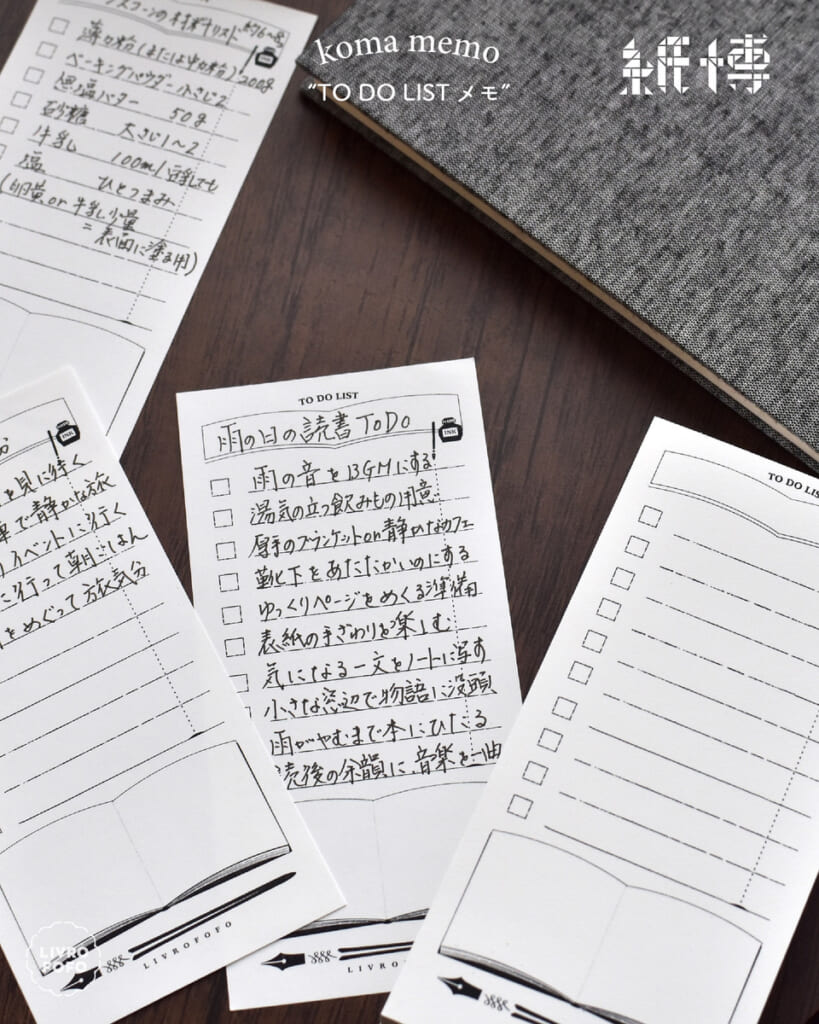 koma memo
“TO DO LIST メモ”
紙博
スコーンの材料リスト 約6〜8
薄力粉(または中力粉)200g
ベーキングパウダー 小さじ2
無塩バター 50g
砂糖 大さじ1〜2
牛乳 100ml 豆乳でも
塩 ひとつまみ
(卵黄 or 牛乳 少量
=表面に塗る用)
INK
を見に行く
で静かな旅
イベントに行く
に行って朝ごはん
をめぐって旅気分
LIVROFOFO
TO DO LIST
雨の日の読書 ToDo
INK
雨の音をBGMにする
湯気の立つ飲みもの用意
厚手のブランケット or 静かなカフェ
靴下をあたたかいのにする
ゆっくりページをめくる準備
表紙の手ざわりを楽しむ
気になる一文をノートに写す
小さな窓辺で物語に没頭
雨がやむまで本にひたる
読後の余韻に、音楽を一曲
LIVROFOFO
TO DO LIS
LIVRO
FOFO